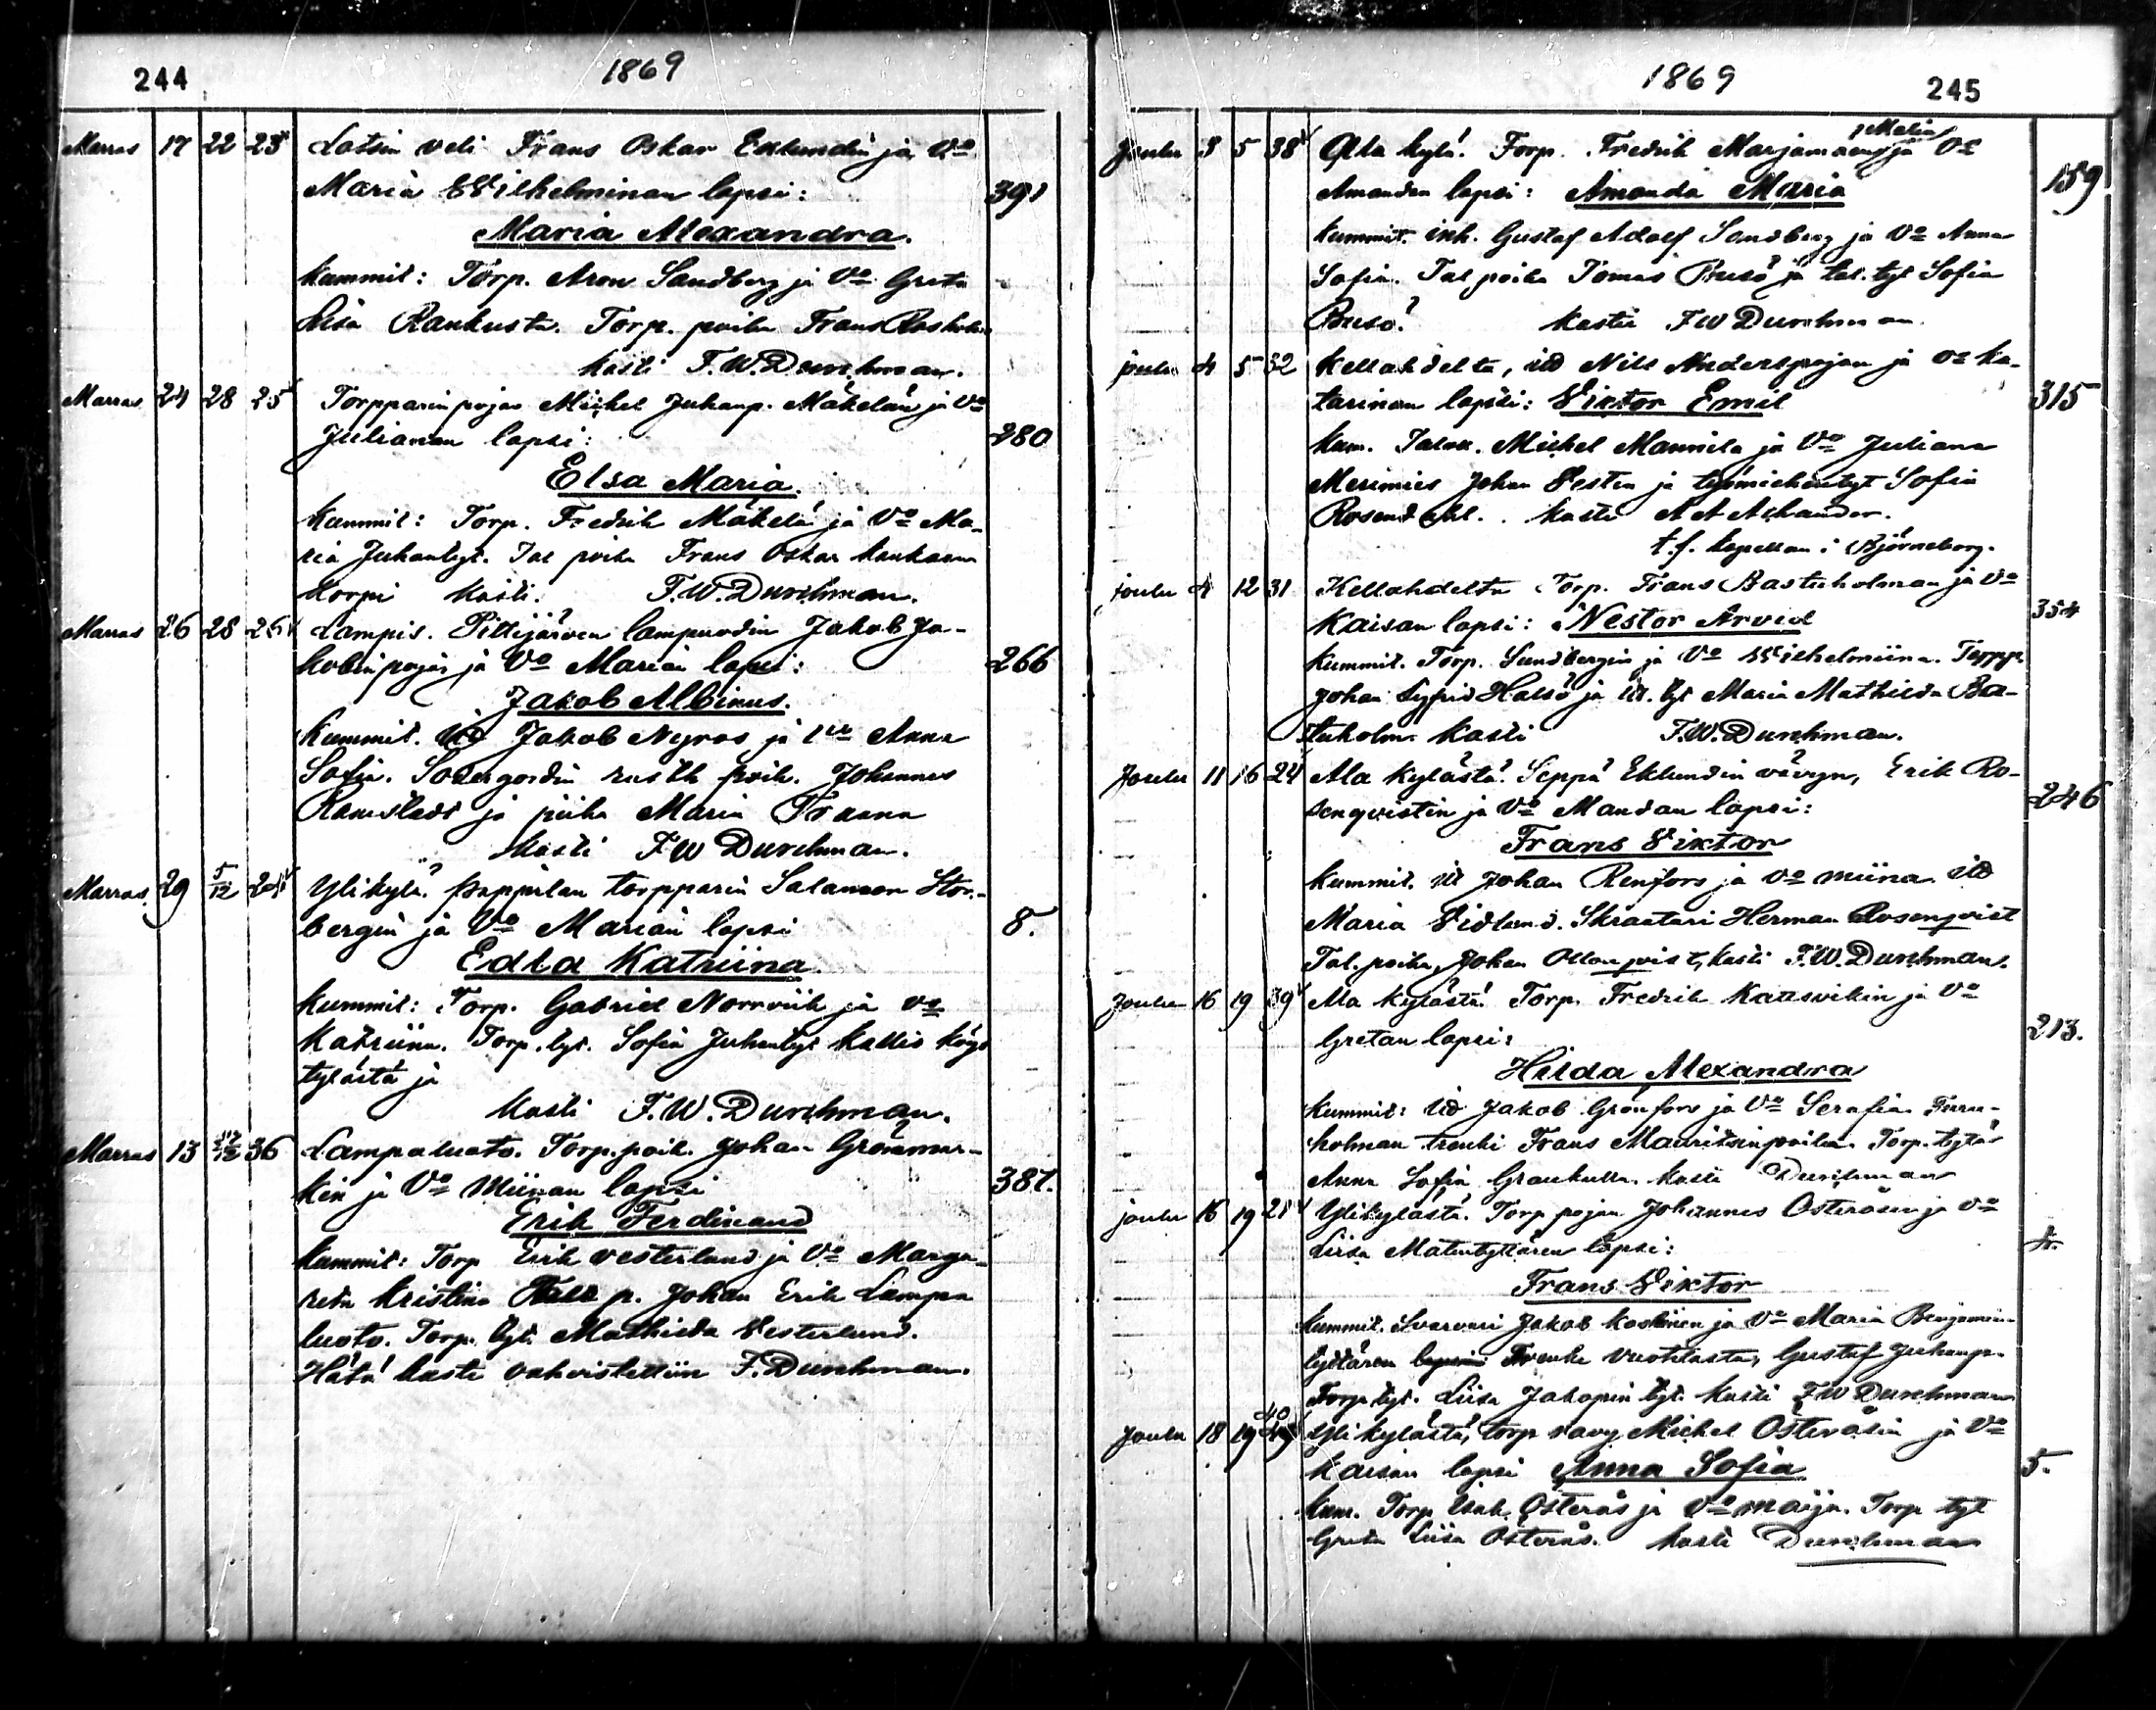 244
1869
Marras 17 22 23 Lotsin veli Frans Oskar Eklundin ja Vo
Maria Wilhelminan lapsi: 391
Maria Alexandra.
Kummit: Torp. Aron Sandberg ja Vo Greta
Lisa Rankusta. Torp. poika Frans
Kasti F.W. Durchman.
Marras 24 28 25 Torpparin pojan Michel Juhanp. Mäkelän ja Vo
Julianan lapsi: 280
Elsa Maria.
Kummit: Torp. Fredrik Mäkelä ja Vo Ma-
ria Juhantyt. Tal poika Frans Oskar Kankaan
Korpi Kasti. F.W. Durchman.
Marras 26 28 26 Lampis. Pittijärven lampuodin Jakob Ja-
kobinpojan ja Vo Marian lapsi: 266
Jakob Albinus.
Kummit. Jakob Nygros ja Vo Anna
Sofia. Södergordin rusth. poik. Johannes
Ramstadt ja piika Maria
Kasti F W Durchman.
Marras 29 5/12 24 Ylikylä. Pappilan torpparin Salamon Stor-
bergin ja Vo Marian lapsi 8.
Edla Katriina
Kummit: Torp. Gabriel Norrviik ja Vo
Katriina. Torp. tyt. Sofia Juhantyt Kallio
kylästä ja
Kasti F.W. Durchman.
Marras 13 /12 36 Lampaluoto. Torp. poik. Johan Grönmar-
kin ja Vo Miinan lapsi 387.
Erik Ferdinand
Kummit: Torp Erik Vesterlund ja Vo Marga-
reta Kristina p. Johan Erik Lampa
luoto. Torp. tyt. Mathilda Vesterlund.
Hätä kaste vahvistettiin F. Durchman.
1869
245
Joulu 3 5 38 Ala kylä. Torp. Fredrik Marjamaan ja Vo
Amandan lapsi: Amanda Maria 159
Kummit. inh. Gustaf Adolf Sandberg ja Vo Anna
Sofia. Tal poika Tomas Busö ja tal. tyt Sofia
Busö. Kasti F W Durchman.
joulu 4 5 32 Kellahdelta, itd Nils Anderspojan ja Vo Ka-
tarinan lapsi: Viktor Emil 315
Kum. Talon. Michel Mannila ja Vo Juliana
Merimies Johan Vesten ja työmiehentyt Sofia
Rosendahl. Kasti A A Ashander.
t.f. kapellan i Björneborg.
joulu 4 12 31 Kellahdelta Torp. Frans Bastuholman ja Vo
Kaisan lapsi: Nestor Arvid 354
Kummit. Torp. Sundbergin ja Vo Wilhelmiina. Torpp.
Johan Sigfrid Halsö ja itl. tyt Maria Mathilda Ba-
stuholm. Kasti F.W. Durchman.
Joulu 11 16 24 Ala kylästä. Seppä Eklundin vävyn, Erik Ro-
senqvistin ja Vo Mandan lapsi: 246
Frans Viktor
Kummit. itl Johan Renfors ja Vo Miina itd
Maria Vidlund. Skraatari Herman Rosenqvist
Tal. poika, Johan Ollonqvist, Kasti F.W. Durchman.
Joulu 16 19 39 Ala kylästä. Torp. Fredrik Kattsvikin ja Vo
Gretan lapsi: 213.
Hilda Alexandra
Kummit: itd Jakob Grönfors ja Vo Serafia. Furu-
holman trenki Frans Mauritsinpoika. Torp. tytär
Anna Sofia Grankulla. Kasti Durchman
joulu 16 19 21 Ylikylästä. Torp pojan Johannes Österåsen ja Vo
Liisa Matintyttären lapsi: 4.
Frans Viktor
Kummit. Svarvari Jakob Koskinen ja Vo Maria Benjamin-
tyttären Trenki Gustaf Juhanp.
Torp tyt. Liisa Jakopin tyt. Kasti F W Durchman
Joulu 18 19 40 Ylikylästä, torp vävy Michel Österåsin ja Vo
Kaisan lapsi Anna Sofia 5.
Kum. Torp Isak. Österås ja Vo Maija. Torp tyt
Greta Liisa Österås. Kasti Durchman